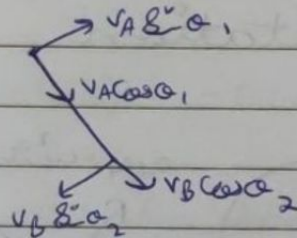 vA sin θ1
vA cos θ1
vB cos θ2
vB sin θ2